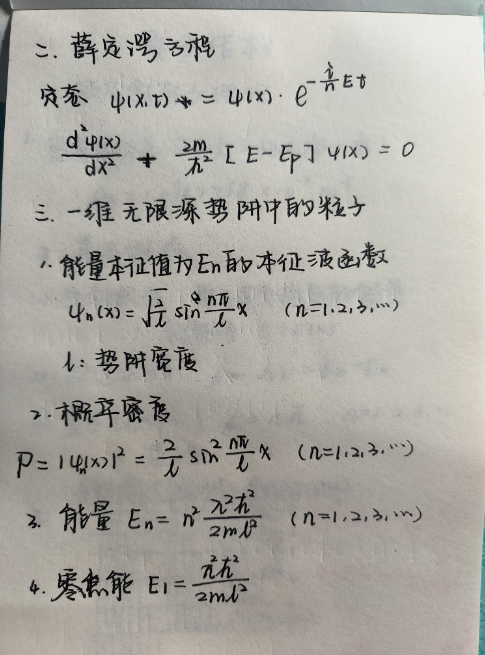 二. 薛定谔方程
定态 ψ(x,t) = ψ(x)·e^{-\frac{i}{ħ}Et}
\frac{d²ψ(x)}{dx²} + \frac{2m}{ħ²}[E-Ep]ψ(x)=0
三. 一维无限深势阱中的粒子
1. 能量本征值为En的本征波函数
ψn(x)=\sqrt{\frac{2}{l}} sin\frac{nπ}{l}x (n=1,2,3,…)
l: 势阱宽度
2. 概率密度
P=|ψn(x)|²=\frac{2}{l} sin²\frac{nπ}{l}x (n=1,2,3,…)
3. 能量 En=n²\frac{π²ħ²}{2ml²} (n=1,2,3,…)
4. 零点能 E1=\frac{π²ħ²}{2ml²}